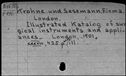 Krohne und Sesemann, Firma.
London.
Illustrated Katalog of sur-
gical instruments and appli-
ances. London, 1901.